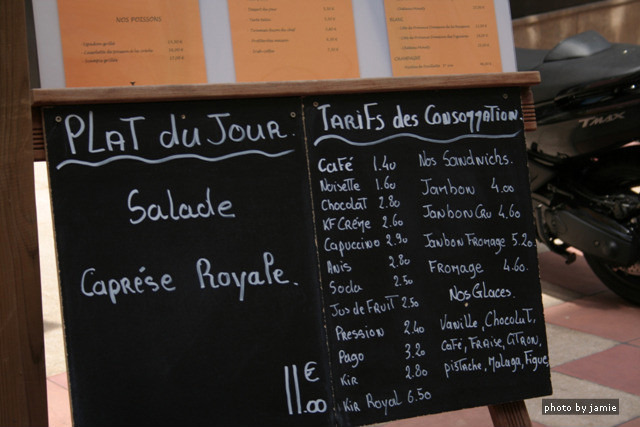 NOS POISSONS
PLAT du JOUR.
Salade
Caprése Royale.
11.00 €
TARIFS des CONSOMMATION.
CAFÉ 1.40
Noisette 1.60
Chocolat 2.80
KF Créme 2.60
Capuccino 2.90
Anis 2.80
Soda 2.50
Jus de FRUIT 2.50
Pression 2.40
Pago 3.20
Kir 2.80
Kir Royal 6.50
Nos Sandwichs.
Jambon 4.00
Jambon Cru 4.60
Jambon Fromage 5.20
Fromage 4.60.
Nos Glaces.
Vanille, Chocolat,
Café, Fraise, Citron,
pistache, Malaga, Figue
TMAX
photo by jamie